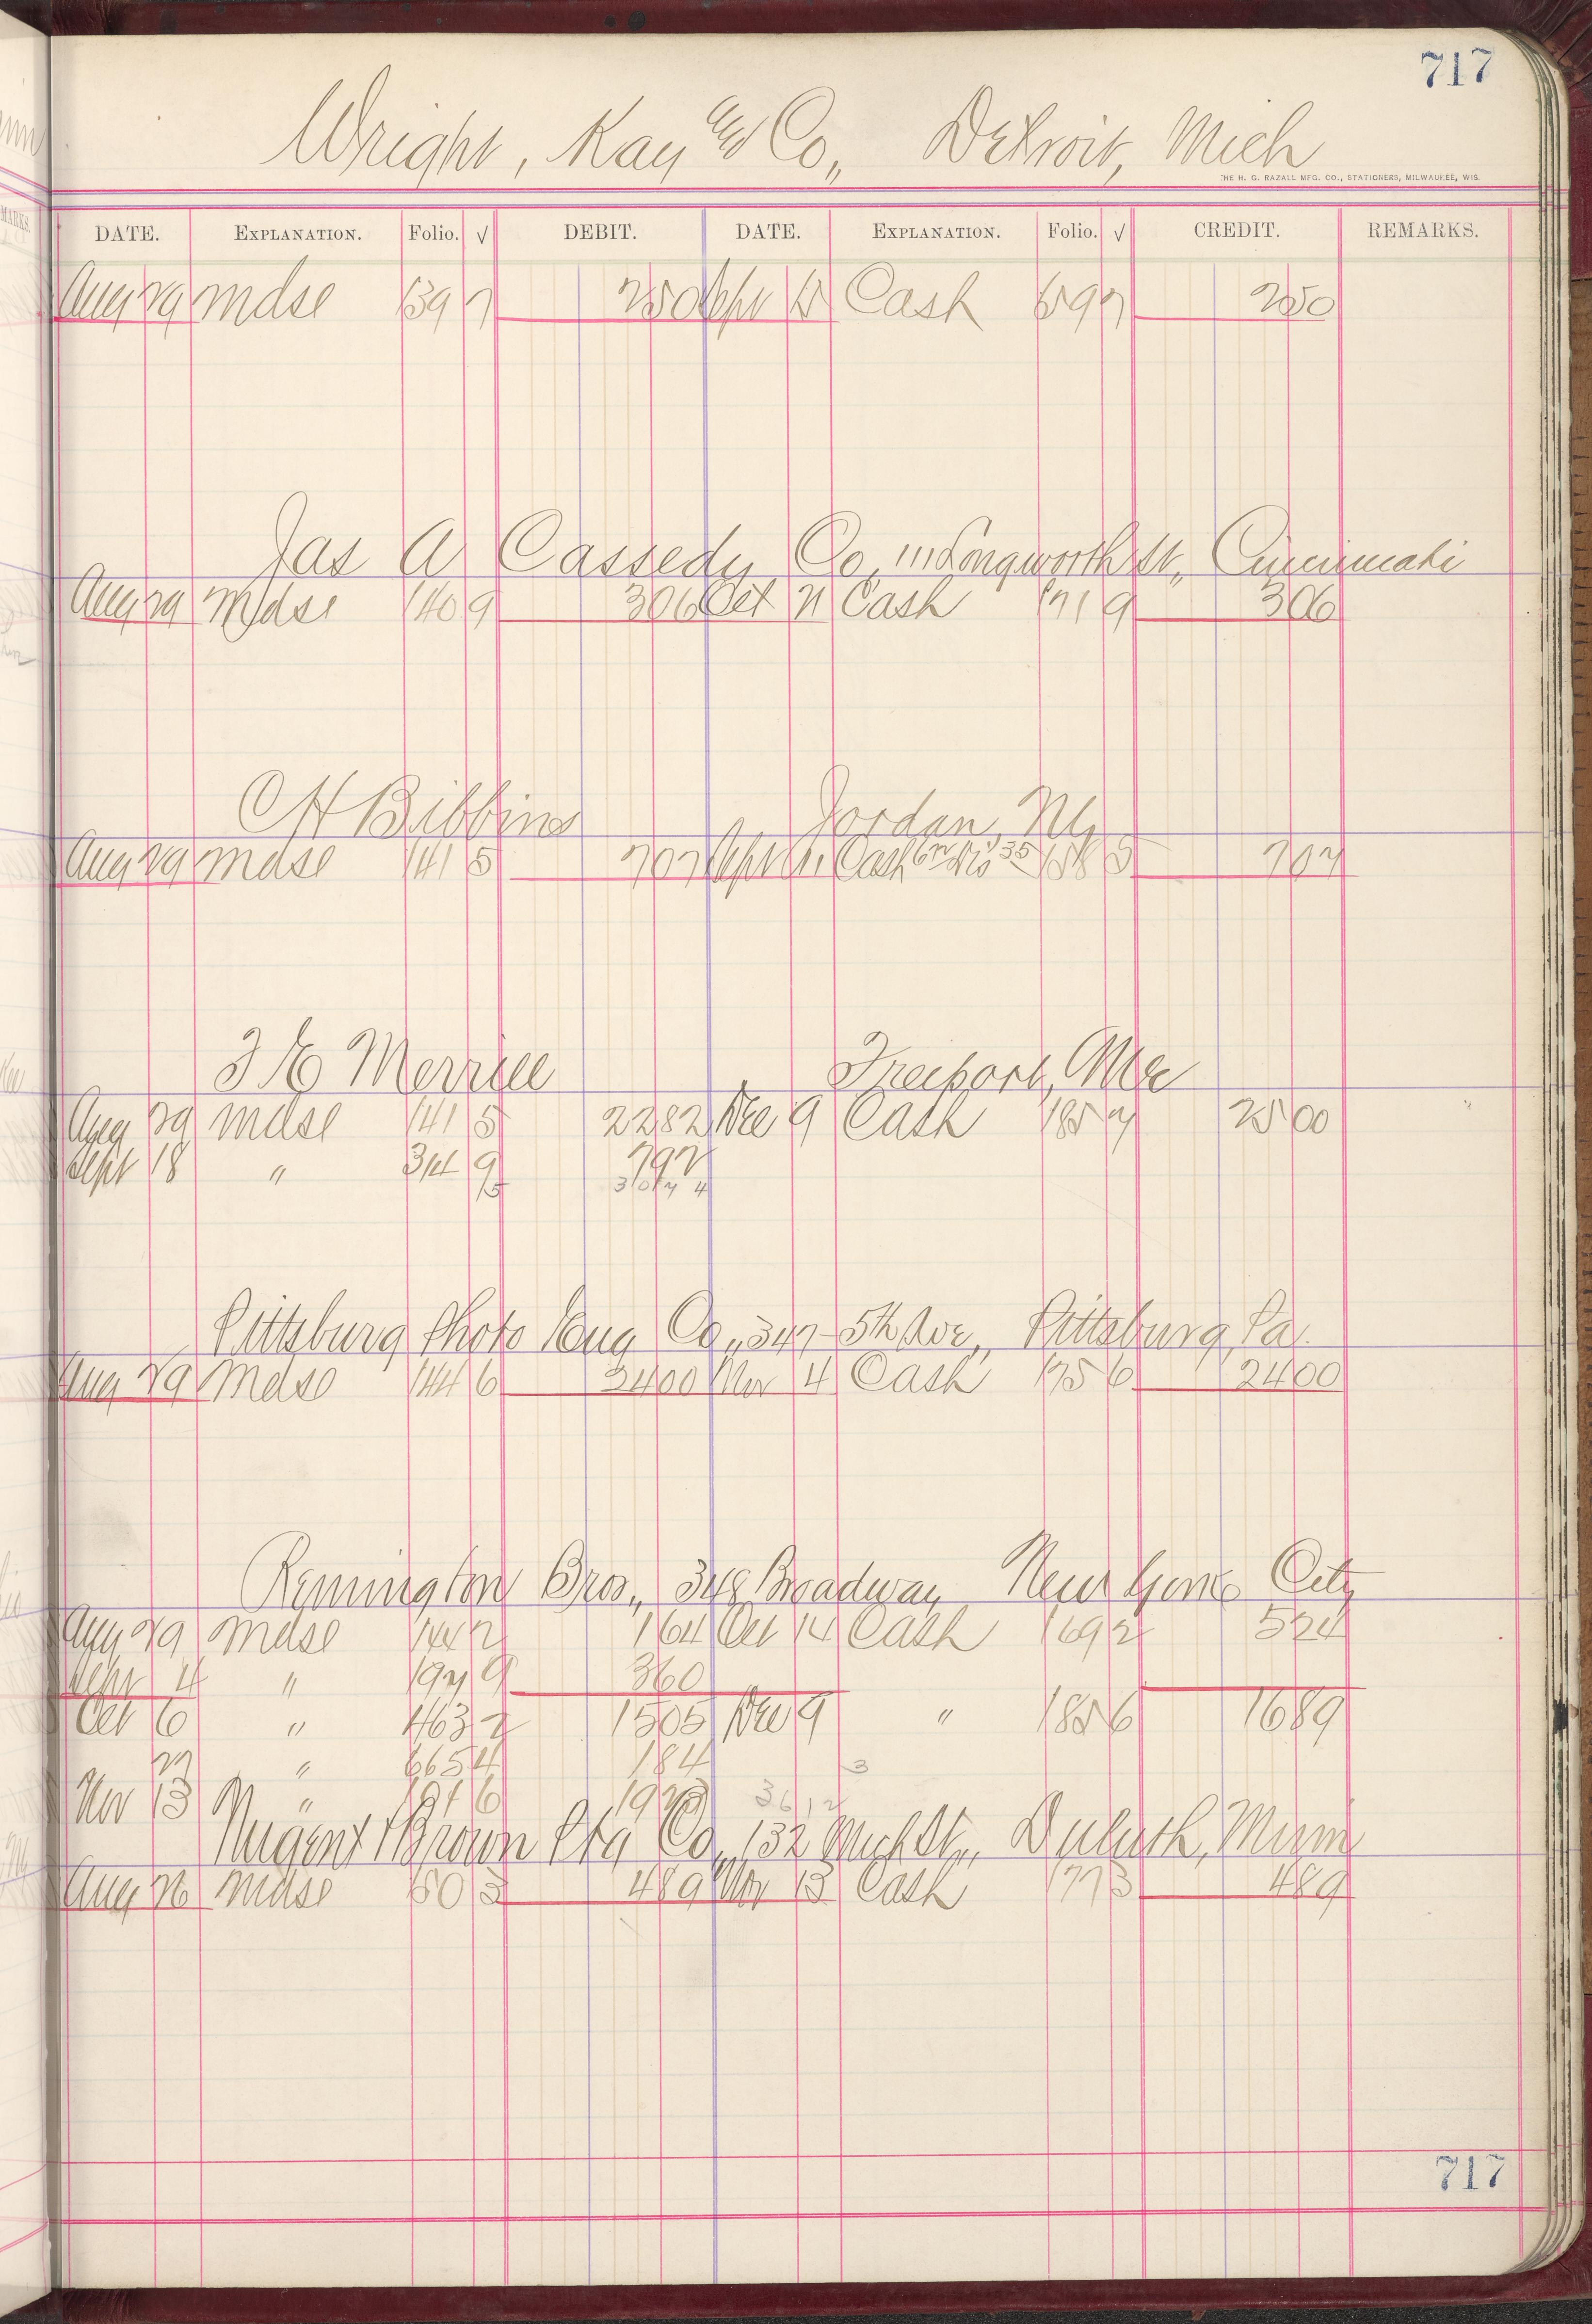 717
Wright, Kay & Co., Detroit, Mich
THE H. G. RAZALL MFG. CO., STATIONERS, MILWAUKEE, WIS.
DATE. EXPLANATION. Folio. √ DEBIT. DATE. EXPLANATION. Folio. √ CREDIT. REMARKS.
Aug 29 Mdse 139 7 250 Sept 15 Cash 159 7 250
Jas A Cassedy Co, 111 Longworth St., Cincinnati
Aug 29 Mdse 140 9 306 Oct 21 Cash 171 9 306
C H Bibbins Jordan, NY
Aug 29 Mdse 141 5 707 Sept 11 Cash 672 Dis 35 158 5 707
F E Merrill Freeport, Me
Aug 29 Mdse 141 5 2282 Dec 9 Cash 185 7 2500
Sept 18 " 314 9 792
3074
Pittsburg Photo Eng Co., 347-5th Ave., Pittsburg, Pa.
Aug 29 Mdse 144 6 2400 Nov 4 Cash 175 6 2400
Remington Bros., 348 Broadway New York City
Aug 29 Mdse 144 2 164 Oct 14 Cash 169 2 524
Sept 4 " 197 9 360
Oct 6 " 463 2 1505 Dec 9 " 185 6 1689
27 " 665 4 184 3
Nov 13 " 6 3612
Nugent & Brown Ptg Co., 132 Mich St., Duluth, Minn
Aug 26 Mdse 150 3 489 Nov 13 Cash 177 3 489
717